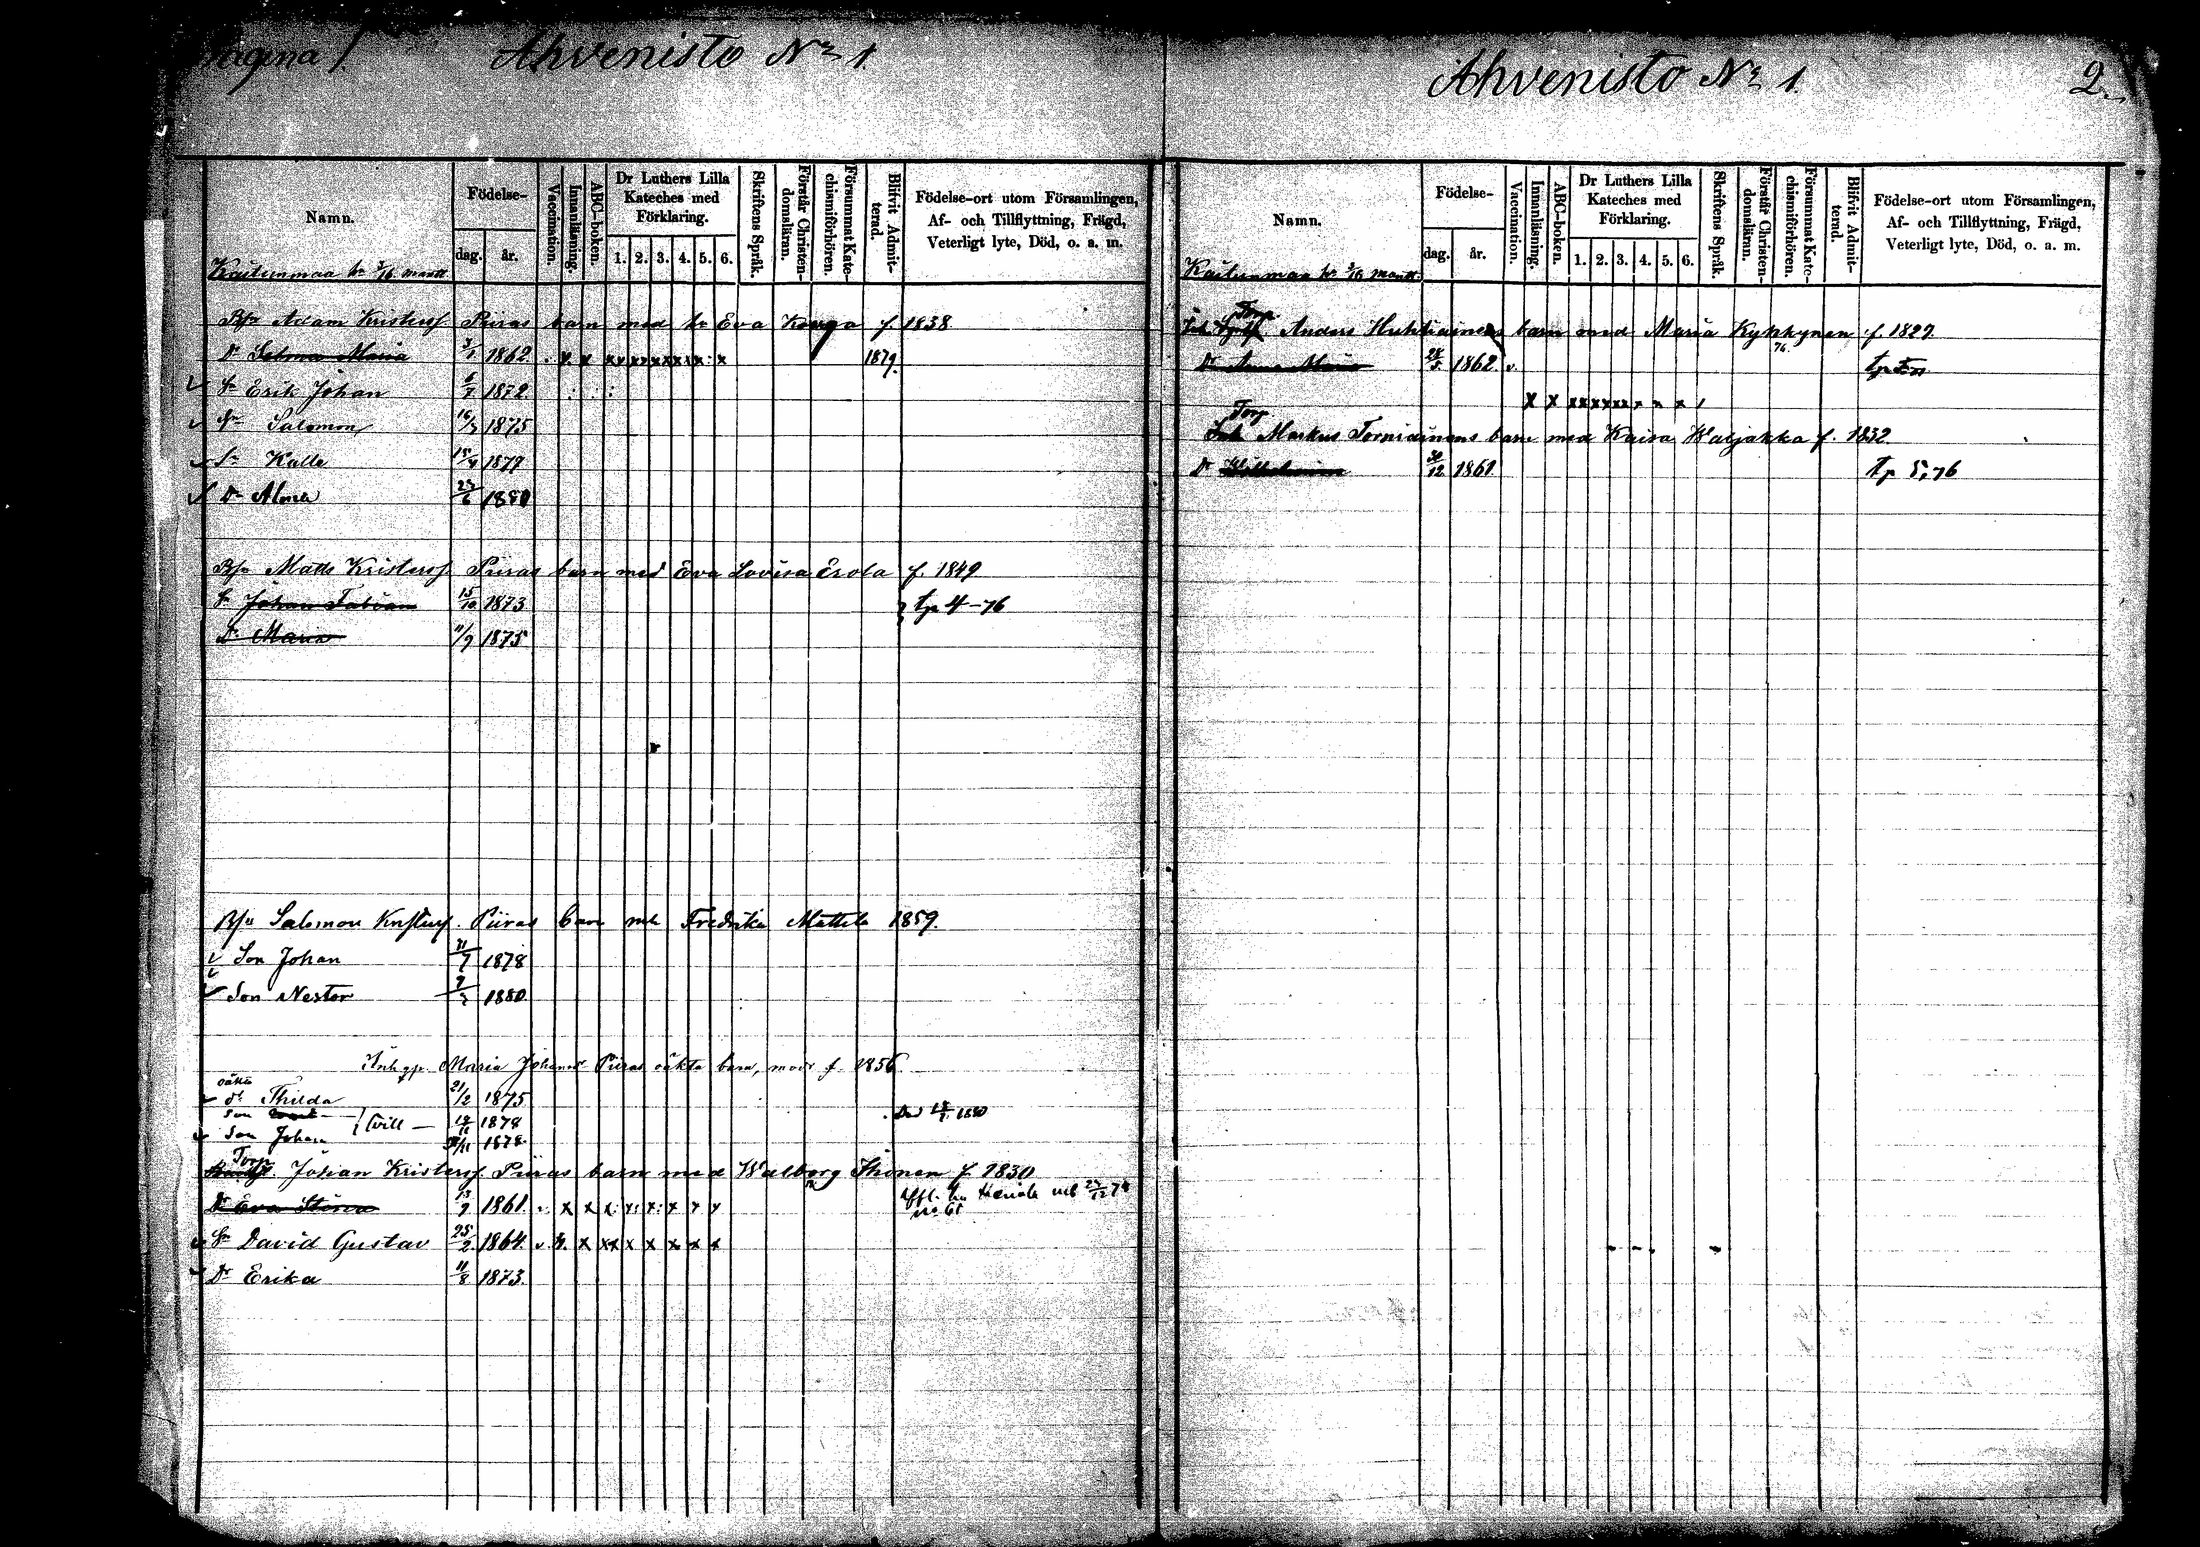 Pagina 1.
Ahvenisto No 1.
Namn.
Födelse-
dag.
år.
Vaccination.
Innanläsning.
ABC-boken.
Dr Luthers Lilla
Kateches med
Förklaring.
1. 2. 3. 4. 5. 6.
Skriftens Språk.
Förstår Christen-
domsläran.
Försummat Kate-
chismiförhören.
Blifvit Admit-
terad.
Födelse-ort utom Församlingen,
Af- och Tillflyttning, Frägd,
Veterligt lyte, Död, o. a. m.
Kaitunmaa hr 3/16 mantt
Adam Kristersf Piiras barn med hr Eva f. 1838
Dr Selma Maria 3/1 1862 x x x x x x x x x x 1879.
Sn Erik Johan 6/7 1872
Sn Salomon 16/3 1875
Sn Kalle 15/4 1879
Dr Alma 23/6 1880
Matts Kristersf Piiras barn med Eva Lovisa Erola f. 1849
Sn Johan Fabian 15/10 1873 tp 4-76
Dr Maria 11/9 1875
Salomon Piiras barn Fredrika 1859.
Son Johan 21/7 1878
Son Nestor 1880
Maria Johansdr Piiras oäkta barn, mor f. 1856
oäkta
dr Thilda 21/2 1875
Son 1878 1880
Son Johan 1878
Torp
Johan Kristersf. Piiras barn med Walborg Ihonen f. 1830
Dr Eva Stina 13/9 1861 x x x x x x x x
Sn David Gustav 25/2 1864 x x x x x x x
Dr Erika 11/8 1873
Ahvenisto No 1.
2.
Namn.
Födelse-
dag.
år.
Vaccination.
Innanläsning.
ABC-boken.
Dr Luthers Lilla
Kateches med
Förklaring.
1. 2. 3. 4. 5. 6.
Skriftens Språk.
Förstår Christen-
domsläran.
Försummat Kate-
chismiförhören.
Blifvit Admit-
terad.
Födelse-ort utom Församlingen,
Af- och Tillflyttning, Frägd,
Veterligt lyte, Död, o. a. m.
Kaitunmaa hr 3/16 mantt.
Torp
Anders Huhtiainens barn med Maria Kykkynen f. 1827
76.
Dr Anna Maria 28/5 1862 v.
x x x x x x x x x x
Torp
Markus Torniainens barn med Kaisa Waljakka f. 1832
Dr Wilhelmina 30/12 1861 tp 5,76